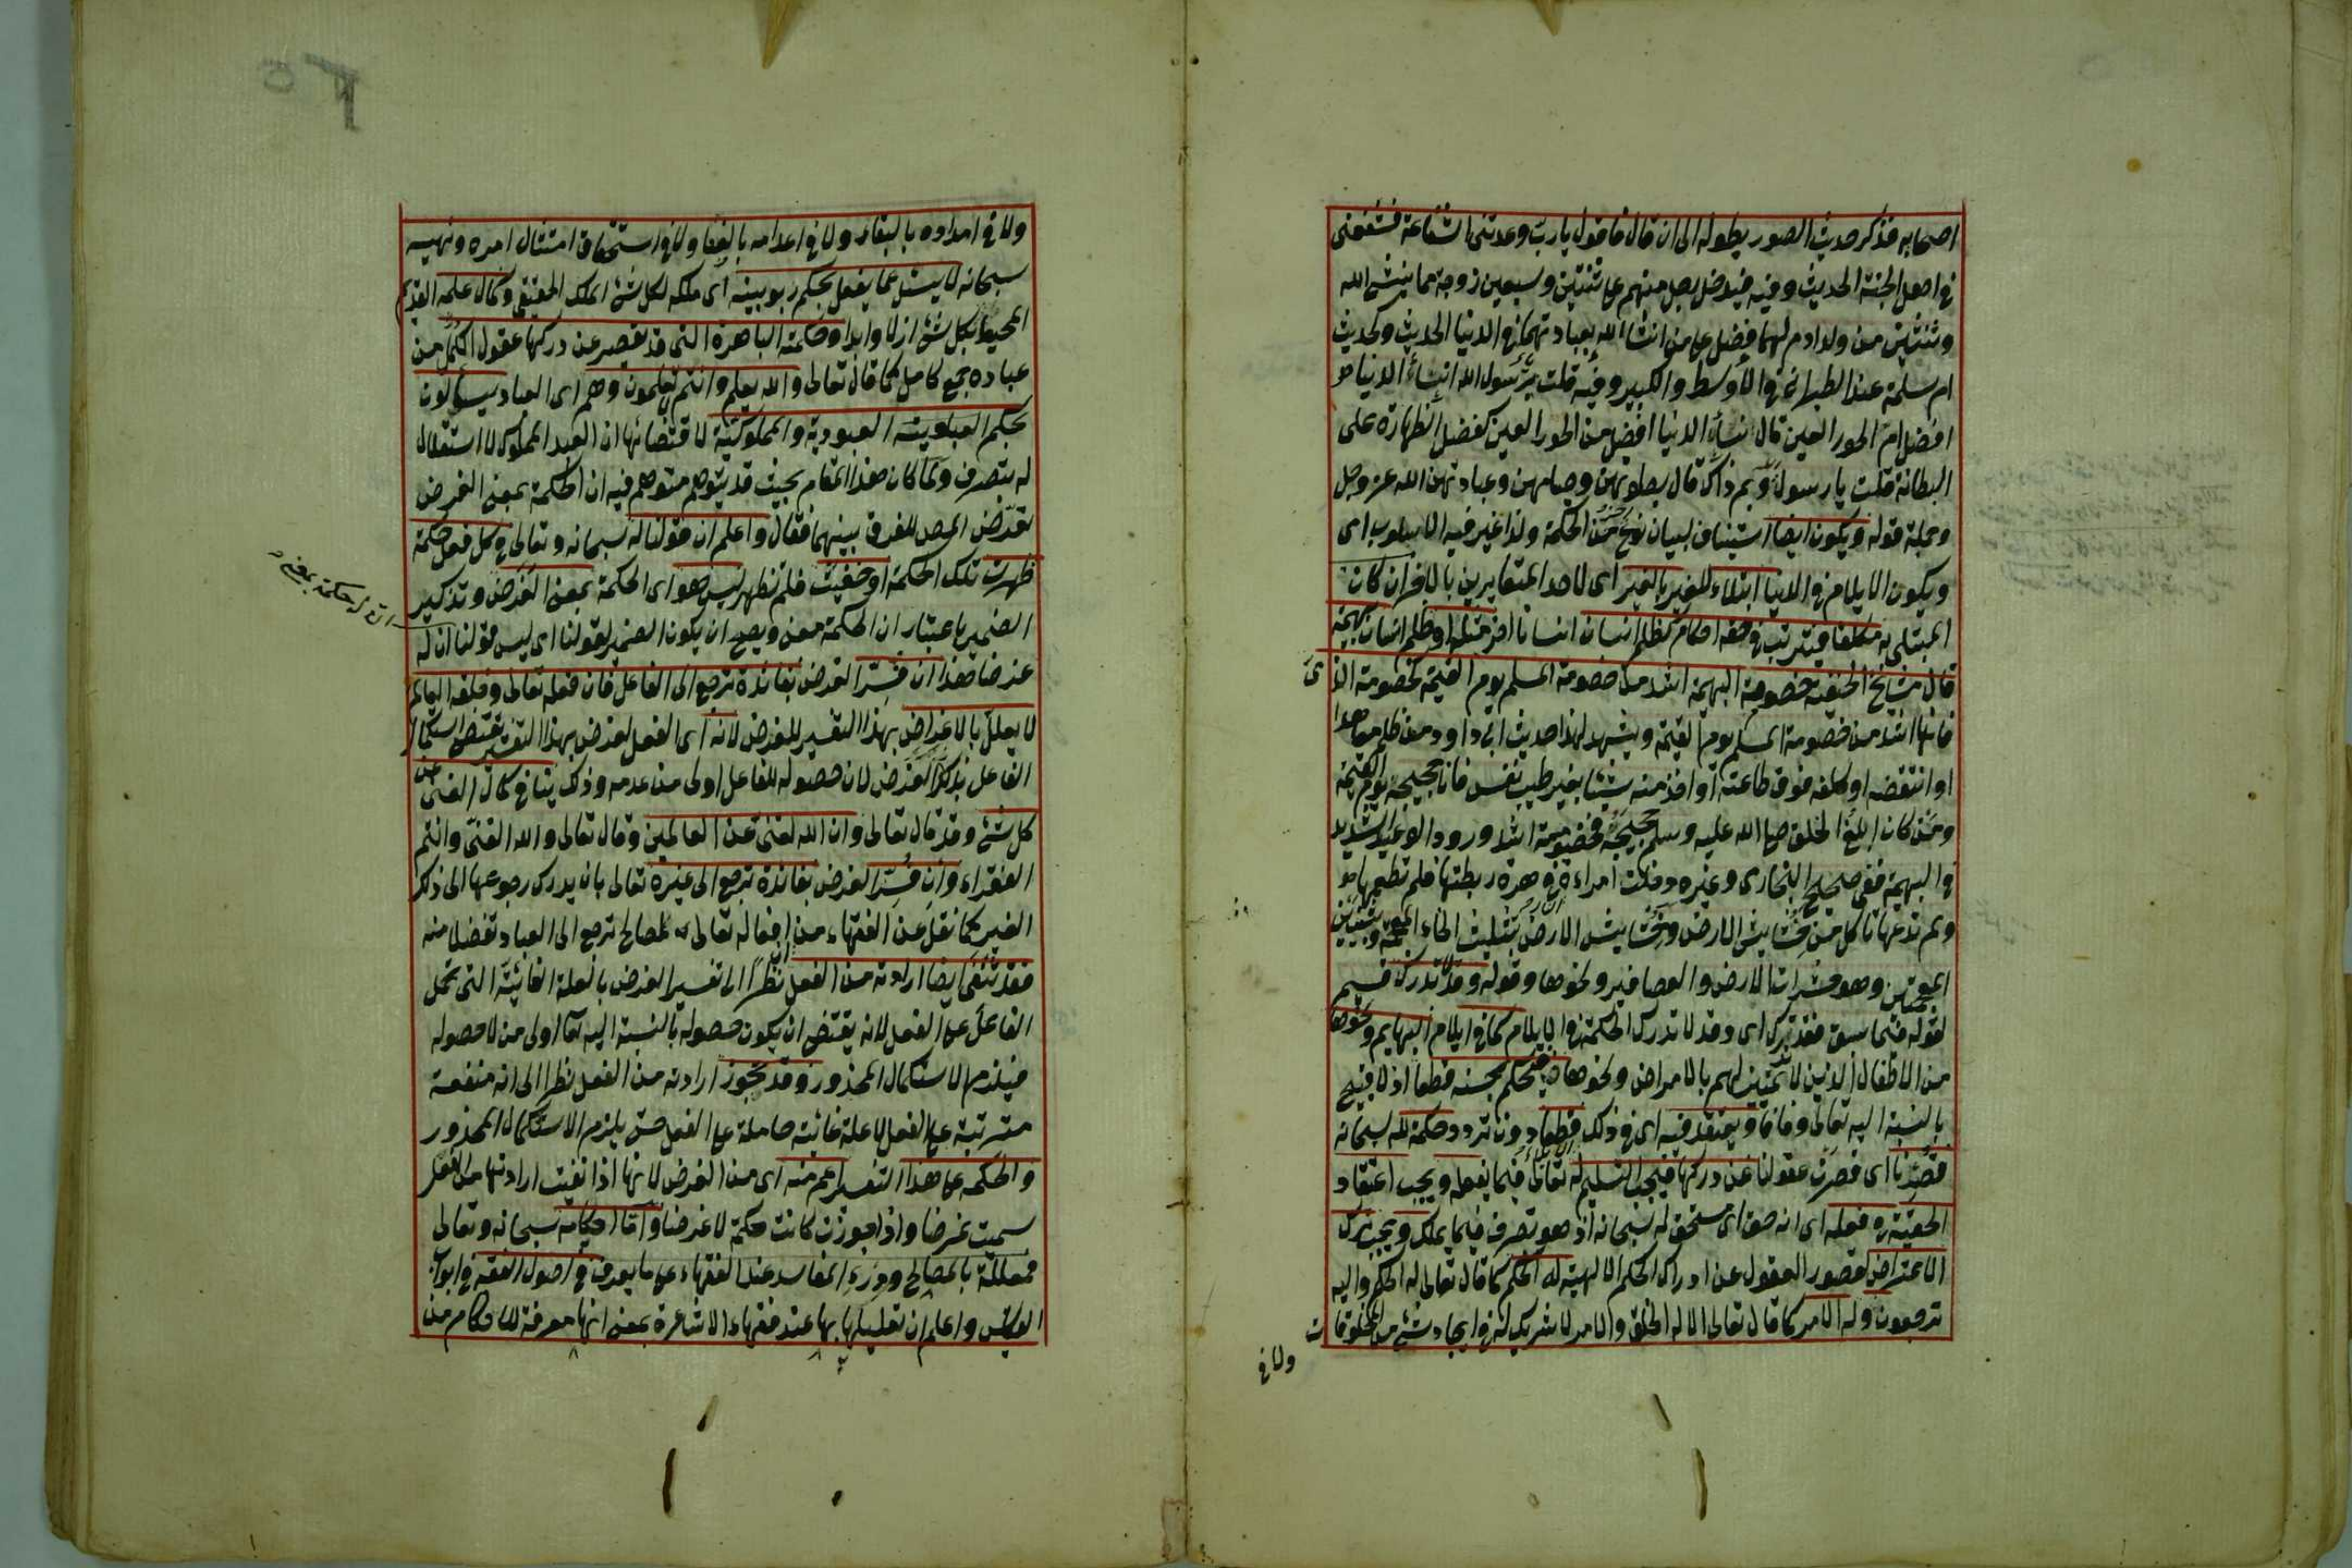 اصحابه فذكر حديث الصور بطوله الى ان قال فاقول يا رب وعدتنى الشفاعة فشفعنى
فى اهل الجنة الحديث وفيه فيدخل رجل منهم على ثنتين وسبعين زوجة مما ينشئ الله
وثنتين من ولد ادم لهما فضل على من انشأ الله بعبادتهما فى الدنيا الحديث وكحديث
ام سلمة عند الطبرانى فى الاوسط والكبير وفيه قلت يا رسول الله انساء الدنيا
افضل ام الحور العين قال نساء الدنيا افضل من الحور العين كفضل الظهارة على
البطانة قلت يا رسول الله وبم ذاك قال بصلوتهن وصيامهن وعبادتهن الله عز وجل
وجملة قوله ويكون ايضا استيناف لبيان نوع من الحكمة ولذا غير فيه الاسلوب اى
ويكون الايلام فى الدنيا ابتلاء للغير بالغير اى لاحد المتغايرين بالاخر ان كان
المبتلى به مكلفا فيترتب فى حقه احكام كظلم انسان انسانا اخر مثله او ظلم انسان بهيمة
قال مشايخ الحنفية خصومة البهيمة اشد من خصومة المسلم يوم القيمة كخصومة الذمى
فانها اشد من خصومة المسلم يوم القيمة ويشهد لهذا حديث ابى داود من ظلم معاهدا
او انتقضه او كلفه فوق طاعته او اخذ منه شيئا بغير طيب نفس فانا حجيجه يوم القيمة
ومن كان ابلغ الخلق صلى الله عليه وسلم حجيجه فخصومته اشد وورود الوعيد الشديد
فى البهيمة ففى صحيح البخارى وغيره دخلت امراءة النار فى هرة ربطتها فلم تطعمها
ولم تدعها تاكل من خشاش الارض وخشاش الارض بتثليث الخاء المعجمة وشينين
المعجمتين وهو حشرات الارض والعصافير ونحوها وقوله وقد لا تدرك قسيم
لقوله فيما سبق فقد تدرك اى وقد لا تدرك الحكمة فى الايلام كما فى ايلام البهايم ونحوها
من الاطفال الذين لا تمييز لهم بالامراض ونحوها فيحكم بحسنه قطعا اذ لا قبيح
بالنسبة اليه تعالى وفاقا ويعتقد فيه اى فى ذلك قطعا دون تردد حكمة لله سبحانه
قصرنا اى قصرت عقولنا عن دركها فيجب التسليم له تعالى فيما يفعله ويجب اعتقاد
الحقية فى فعله اى انه حق اى مستحق له سبحانه اذ هو تصرف فيما يملك ويجب ترك
الاعتراض لقصور العقول عن ادراك الحكم الالهية له الحكم كما قال تعالى له الحكم واليه
ترجعون وله الامر كما قال تعالى الا له الخلق والامر لا شريك له فى ايجاد شئ من المخلوقات
ولا فى
ولا فى امداده بالبقاء ولا فى اعدامه بالفناء ولا فى استحقاق امتثال امره ونهيه
سبحانه لا يسئل عما يفعل بحكم ربوبيته اى ملكه لكل شئ الملك الحقيقى وكمال علمه القديم
المحيط بكل شئ ازلا وابدا وحكمته الباهرة التى قد تقصر عن دركها عقول الكمل من
عباده جمع كامل كما قال تعالى والله يعلم وانتم لا تعلمون وهم اى العباد يسئلون
بحكم العبودية والمملوكية لاقتضائها ان العبد المملوك لا استقلال
له بتصرف ولما كان هذا المقام بحيث قد يتوهم متوهم فيه ان الحكمة بمعنى الغرض
تعرض المص للفرق بينهما فقال واعلم ان قولنا له سبحانه وتعالى فى كل فعل حكمة
ظهرت تلك الحكمة او خفيت فلم تظهر ليس هو اى الحكمة بمعنى الغرض وتذكير
الضمير باعتبار ان الحكمة معنى ويصح ان يكون الضمير لقولنا اى ليس قولنا ان له
ان له حكمة بمعنى
غرضا هذا ان فسر الغرض بفائدة ترجع الى الفاعل فان فعله تعالى وخلقه العالم
لا يعلل بالاغراض بهذا التفسير للغرض لانه اى الفعل لغرض بهذا التفسير يقتضى استكمال
الفاعل بذلك الغرض لان حصوله للفاعل اولى من عدمه وذلك ينافى كمال الغنى عن
كل شئ وقد قال تعالى وان الله لغنى عن العالمين وقال تعالى والله الغنى وانتم
الفقراء وان فسر الغرض بفائدة ترجع الى غيره تعالى بان يدرك رجوعها الى ذلك
الغير كما نقل عن الفقهاء من ان افعاله تعالى لمصالح ترجع الى العباد تفضلا منه
فقد تنفى ايضا ارادته من الفعل نظرا الى تفسير الغرض بالعلة الغائية التى تحمل
الفاعل على الفعل لانه يقتضى ان يكون حصوله بالنسبة اليه تعالى اولى من لا حصوله
فيلزم الاستكمال المحذور وقد تجوز ارادته من الفعل نظرا الى انه منفعة
مترتبة على الفعل لا علة غائية حاملة على الفعل حتى يلزم الاستكمال المحذور
والحكمة على هذا التفسير اعم منه اى من الغرض لانها اذا نفيت ارادتها من الفعل
سميت غرضا واذا جوزت كانت حكمة لا غرضا واما احكامه سبحانه وتعالى
فمعللة بالمصالح ودرء المفاسد عند الفقهاء على ما يعرف فى اصول الفقه فى ابواب
القياس واعلم ان تعليلها بها عند فقهاء الاشاعرة بمعنى انها معرفة للاحكام من